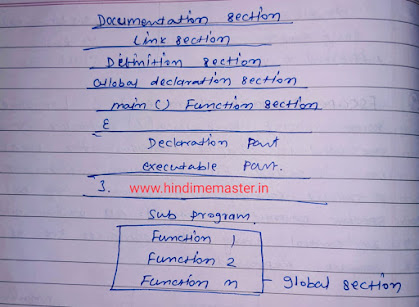 Documentation section
Link section
Definition section
Global declaration section
main () Function section
{
Declaration Part
executable Part.
}.
www.hindimemaster.in
Sub program
Function 1
Function 2
Function n - global section